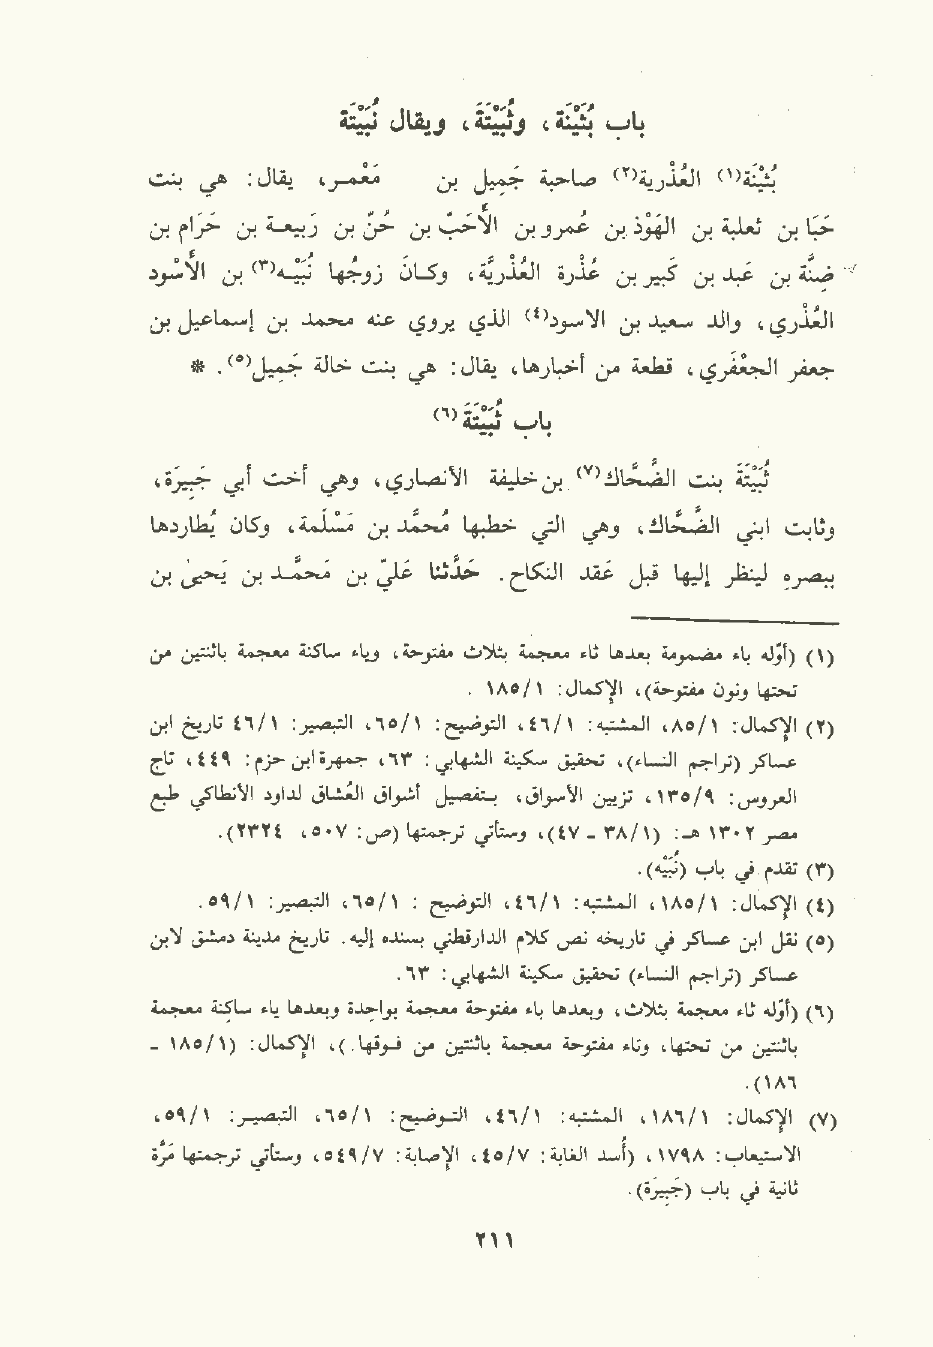 باب بُثَيْنَة، وثُبَيْتَةَ، ويقال نُبَيْتَة
بُثَيْنَة(١) العُذْرية(٢) صاحبة جَمِيل بن مَعْمر، يقال: هي بنت
حَبَا بن ثعلبة بن الهَوْذ بن عَمرو بن الأَحَبّ بن حُنّ بن رَبيعة بن حَرام بن
ضِنّة بن عَبد بن كَبير بن عُذرة العُذْريَّة، وكانَ زوجُها نُبَيْه(٣) بن الأَسْود
العُذْري، والد سعيد بن الأسود(٤) الذي يروي عنه محمد بن إسماعيل بن
جعفر الجَعْفَري، قطعة من أخبارها، يقال: هي بنت خالة جَمِيل(٥). *
باب ثُبَيْتَةَ(٦)
ثُبَيْتَةَ بنت الضَّحَّاك(٧) بن خليفة الأنصاري، وهي أخت أبي جَبِيرَة،
وثابت ابني الضَّحَّاك، وهي التي خطبها مُحمَّد بن مَسْلَمة، وكان يُطاردها
ببصرهِ لينظر إليها قبل عَقد النكاح. حَدَّثنا عَليّ بن مُحمَّد بن يَحيىٰ بن
(١) (أوّله باء مضمومة بعدها ثاء معجمة بثلاث مفتوحة، وياء ساكنة معجمة باثنتين من
تحتها ونون مفتوحة)، الإكمال: ١/ ١٨٥.
(٢) الإكمال: ١/ ٨٥، المشتبه: ١/ ٤٦، التوضيح: ١/ ٦٥، التبصير: ١/ ٤٦ تاريخ ابن
عساكر (تراجم النساء)، تحقيق سكينة الشهابي: ٦٣، جمهرة ابن حزم: ٤٤٩، تاج
العروس: ٩/ ١٣٥، تزيين الأسواق، بتفصيل أشواق العُشاق لداود الأنطاكي طبع
مصر ١٣٠٢ هـ: (١/ ٣٨ - ٤٧)، وستأتي ترجمتها (ص: ٥٠٧، ٢٣٢٤).
(٣) تقدم في باب (نُبَيْه).
(٤) الإكمال: ١/ ١٨٥، المشتبه: ١/ ٤٦، التوضيح : ١/ ٦٥، التبصير: ١/ ٥٩.
(٥) نقل ابن عساكر في تاريخه نص كلام الدارقطني بسنده إليه. تاريخ مدينة دمشق لابن
عساكر (تراجم النساء) تحقيق سكينة الشهابي: ٦٣.
(٦) (أوّله ثاء معجمة بثلاث، وبعدها باء مفتوحة معجمة بواحِدة وبعدها ياء ساكنة معجمة
باثنتين من تحتها، وتاء مفتوحة معجمة باثنتين من فوقها.)، الإكمال: (١/ ١٨٥ -
١٨٦).
(٧) الإكمال: ١/ ١٨٦، المشتبه: ١/ ٤٦، التوضيح: ١/ ٦٥، التبصير: ١/ ٥٩،
الاستيعاب: ١٧٩٨، (أُسد الغابة: ٧/ ٤٥، الإصابة: ٧/ ٥٤٩، وستأتي ترجمتها مَرّةً
ثانية في باب (جَبِيرَة).
٢١١